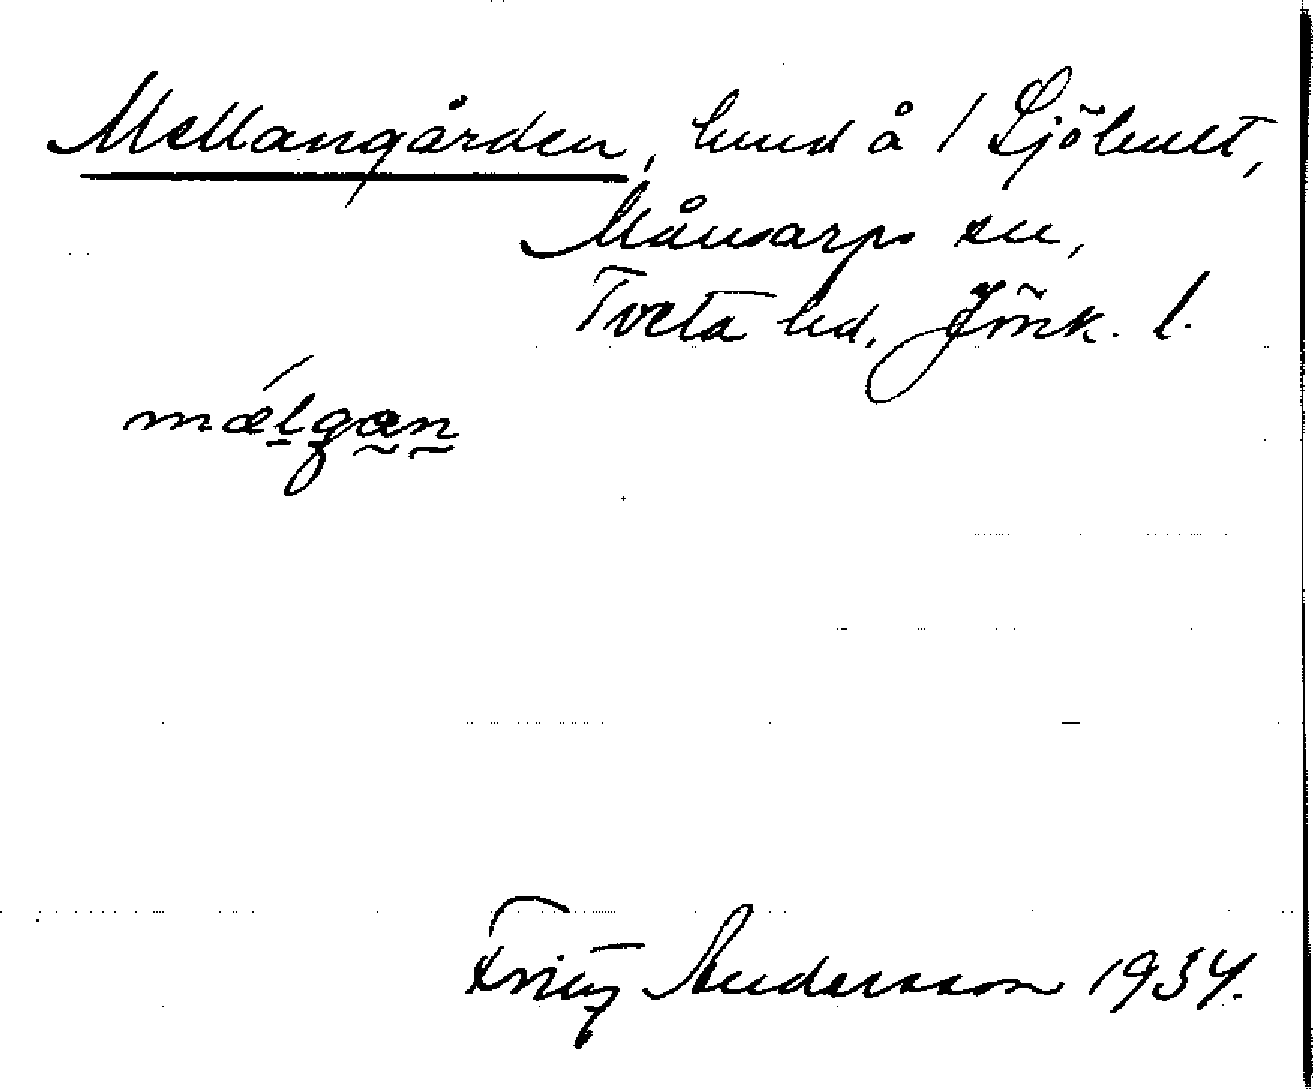 Mellangården, hmd å 1 Sjöhult,
Månsarps sn,
Tveta hd. Jönk. l.
mælgan
Fritz Andersson 1934.